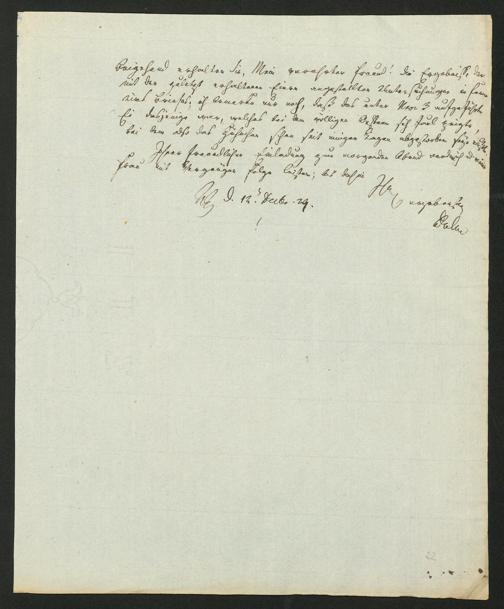 Beigehend erhalten Sie, Mein verehrter Freund! die Ergebnisse der
mit den zuletzt erhaltenen Eiern angestellten Untersuchungen in Form
eines Briefes; ich bemerke nur noch, daß das unter Nro. 3 aufgeführte
Ei dasjenige war, welches bei dem völligen Oeffnen sich faul zeigte,
bei dem also das Hühnchen schon seit einigen Tagen abgestorben seyn
Ihrer freundlichen Einladung zum morgenden Abend werde ich und meine
Frau mit Vergnügen Folge leisten; bis dahin
Ihr ergebenster
d. 12 Decbr. 29.